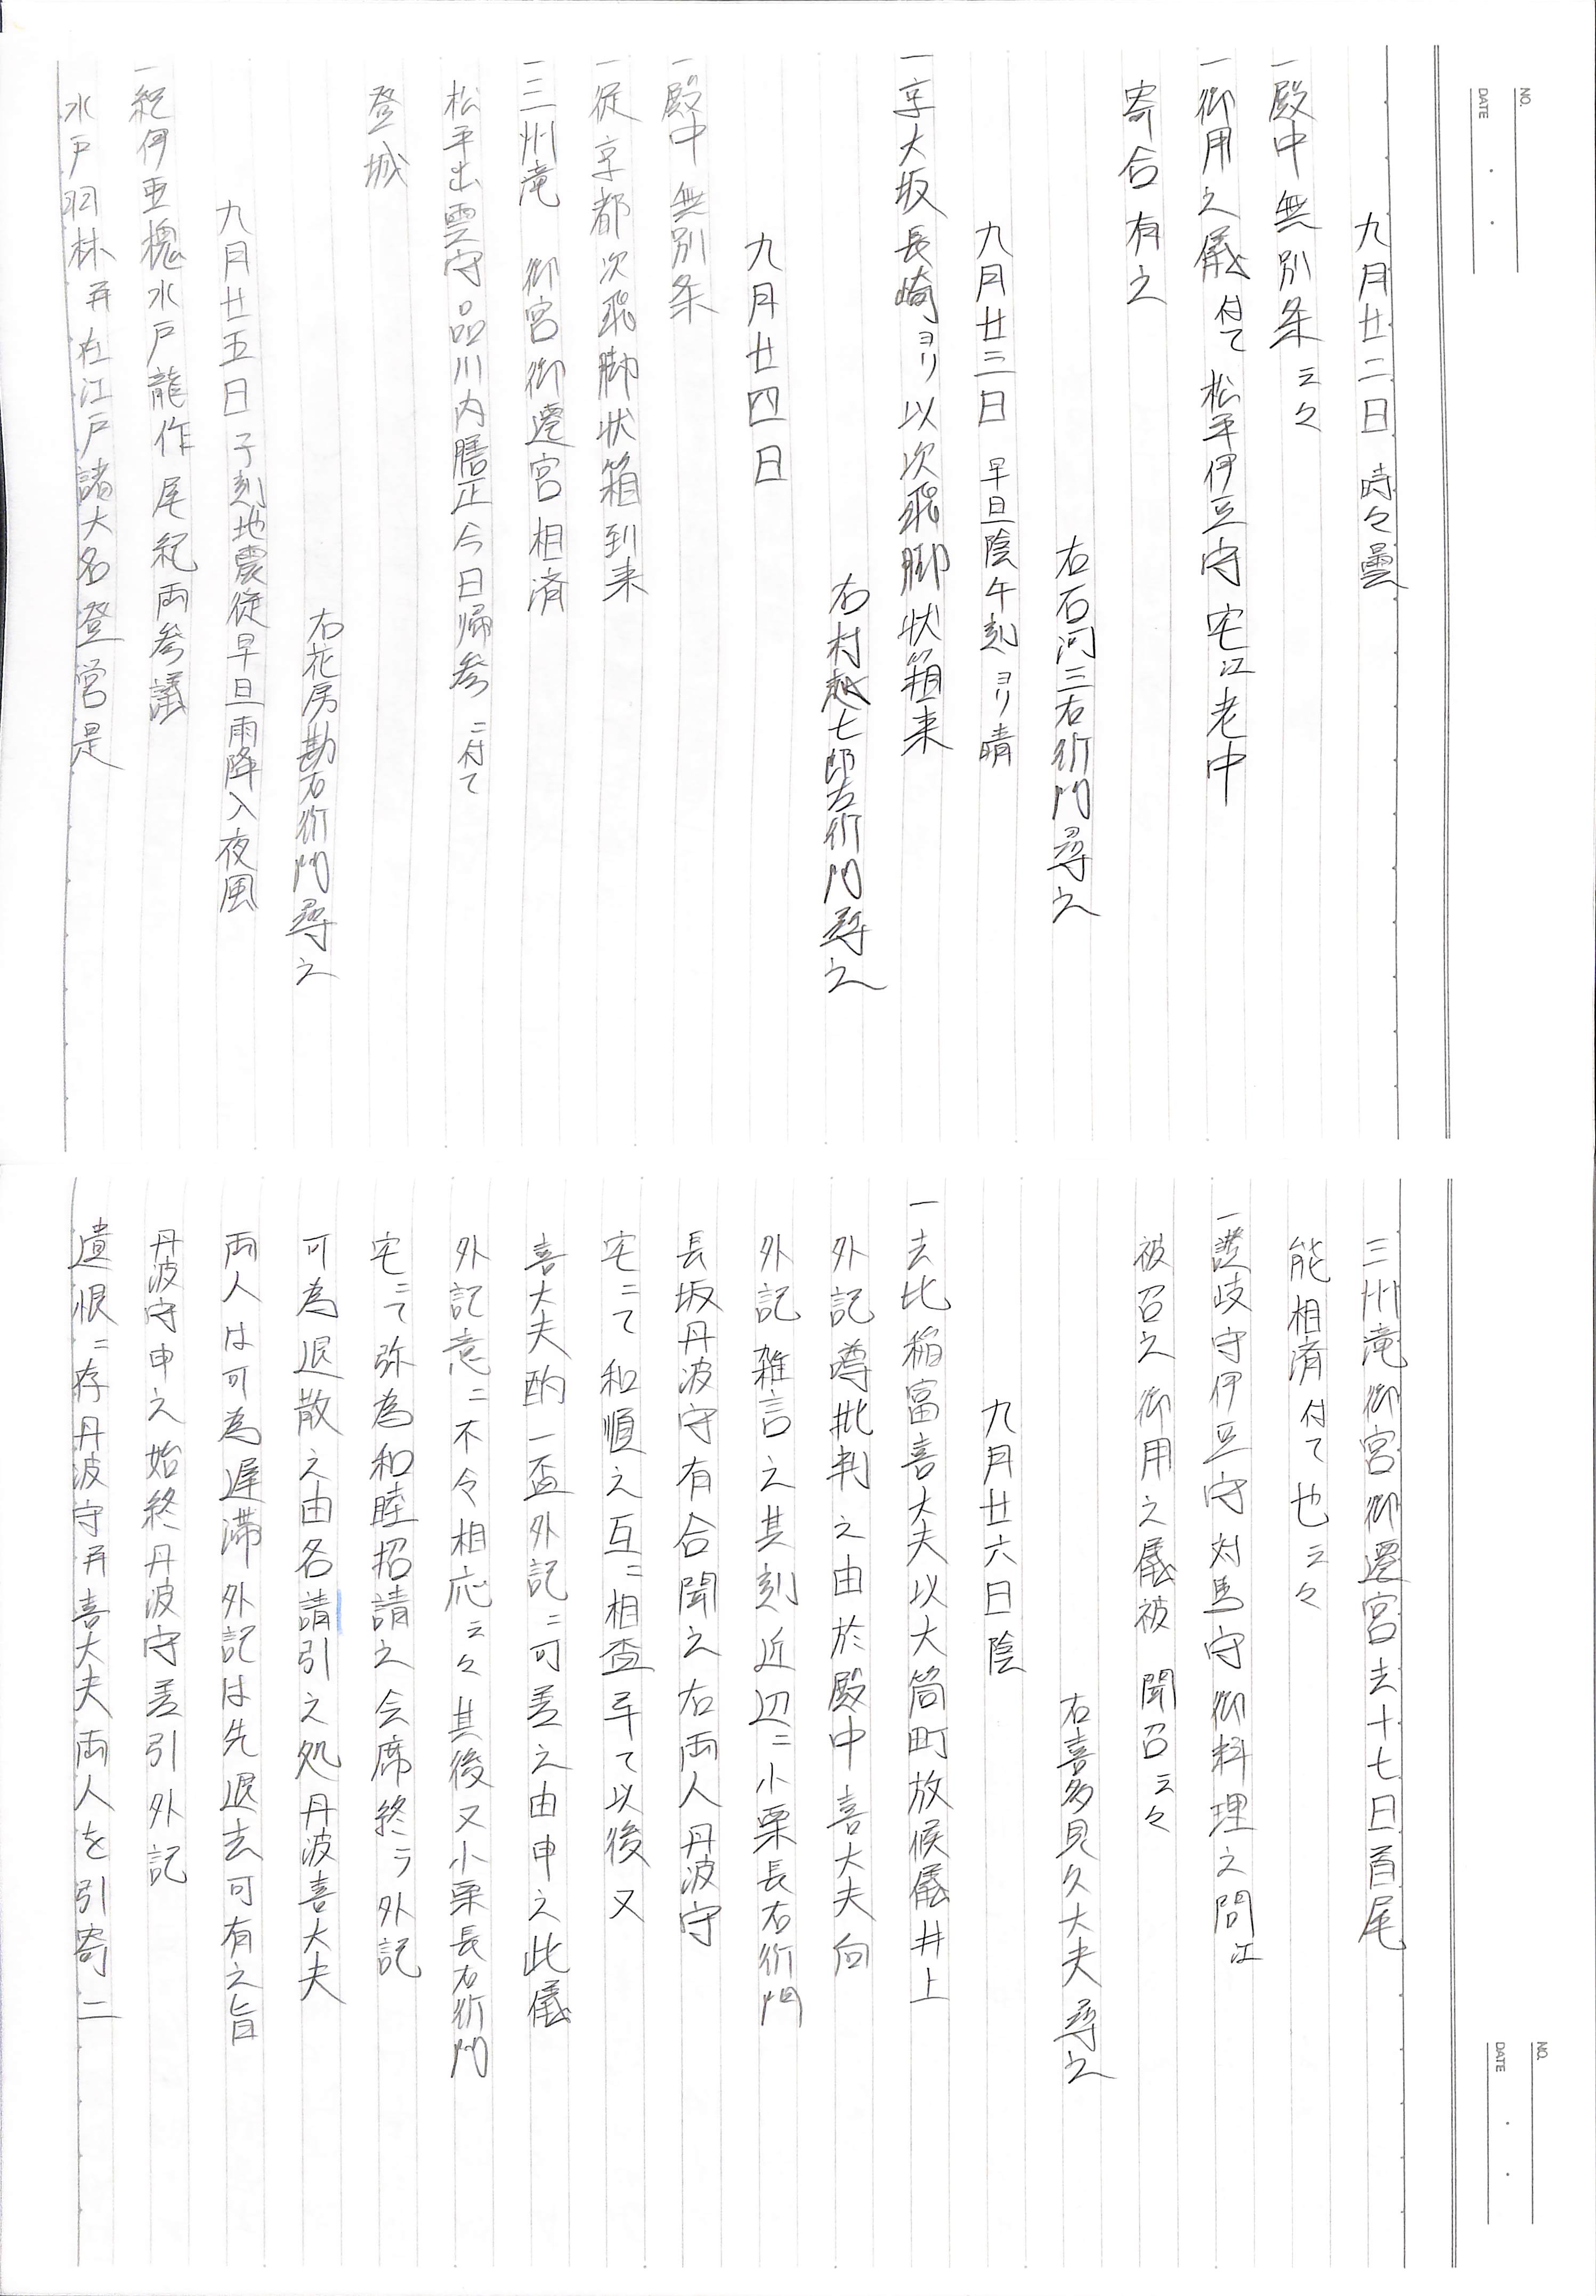 NO.
DATE
九月廿二日 時々曇
一殿中無別条云々
一御用之儀付て松平伊豆守宅江老中
寄合有之
右石河三右衛門尋之
九月廿三日 早旦陰午刻ヨリ晴
一京大坂長崎ヨリ以次飛脚状箱来
右村越七郎左衛門尋之
九月廿四日
一殿中無別条
一従京都次飛脚状箱到来
一三州滝 御宮御遷宮相済
松平出雲守品川内膳正今日帰参ニ付て
登城
右花房勘右衛門尋之
九月廿五日 子刻地震従早旦雨降入夜風
一紀伊亜槐水戸龍作尾紀両参議
水戸羽林并在江戸諸大名登営是
NO.
DATE
三州滝御宮御遷宮去十七日首尾
能相済付て也云々
一讃岐守伊豆守対馬守御料理之間江
被召之御用之儀被聞召云々
右喜多見久大夫尋之
九月廿六日陰
一去比稲富喜大夫以大筒町放候儀井上
外記蹲批判之由於殿中喜大夫向
外記雑言之其刻近辺ニ小栗長右衛門
長坂丹波守有合聞之右両人丹波守
宅ニて和順之互ニ相盃畢て以後又
喜大夫酌一盃外記ニ可差之由申之此儀
外記意ニ不令相応云々其後又小栗長右衛門
宅ニて弥為和睦招請之会席終ヲ外記
可為退散之由各請引之処丹波喜大夫
両人は可為遅滞外記は先退去可有之旨
丹波守申之始終丹波守差引外記
遺恨ニ存丹波守并喜大夫両人を引寄二